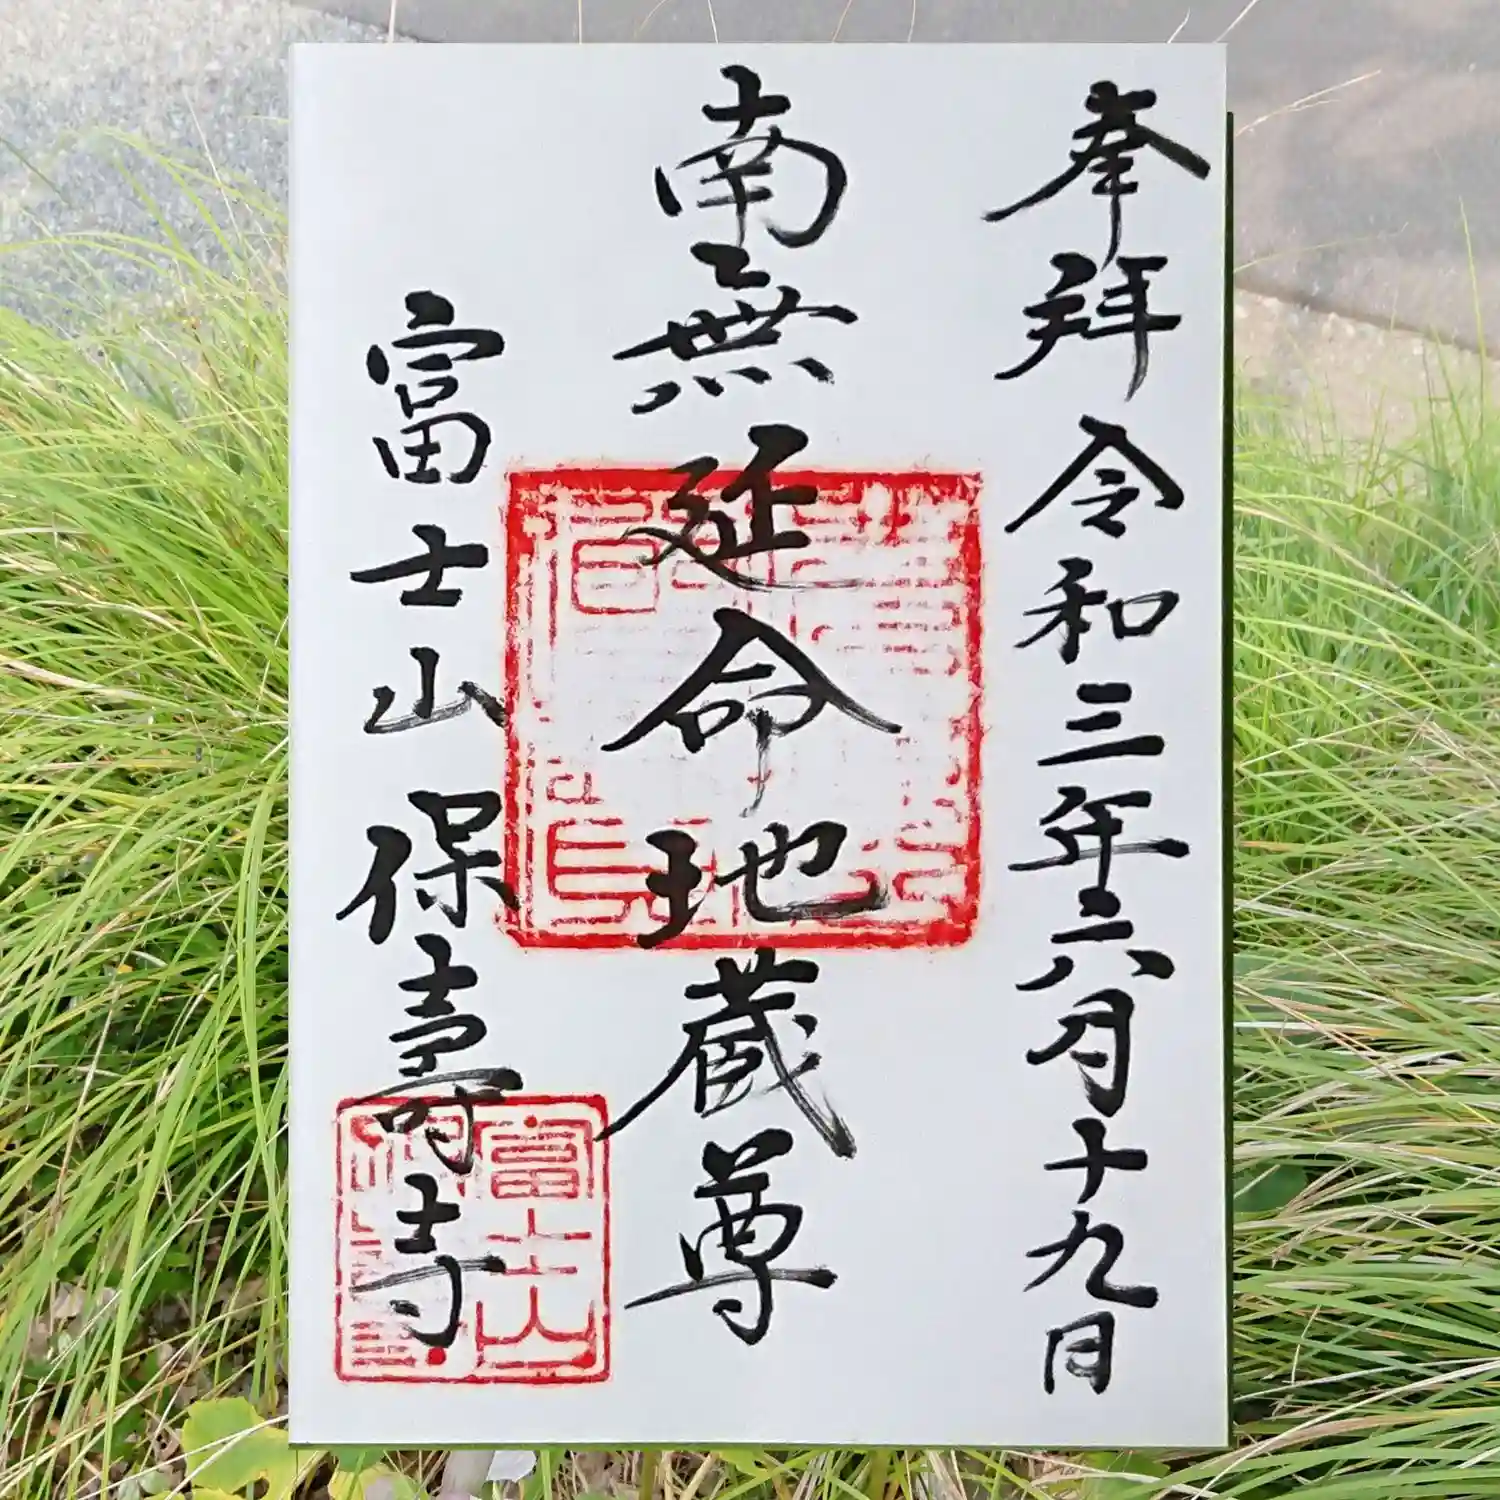 奉拝 令和三年六月十九日
南無延命地蔵尊
富士山保壽寺